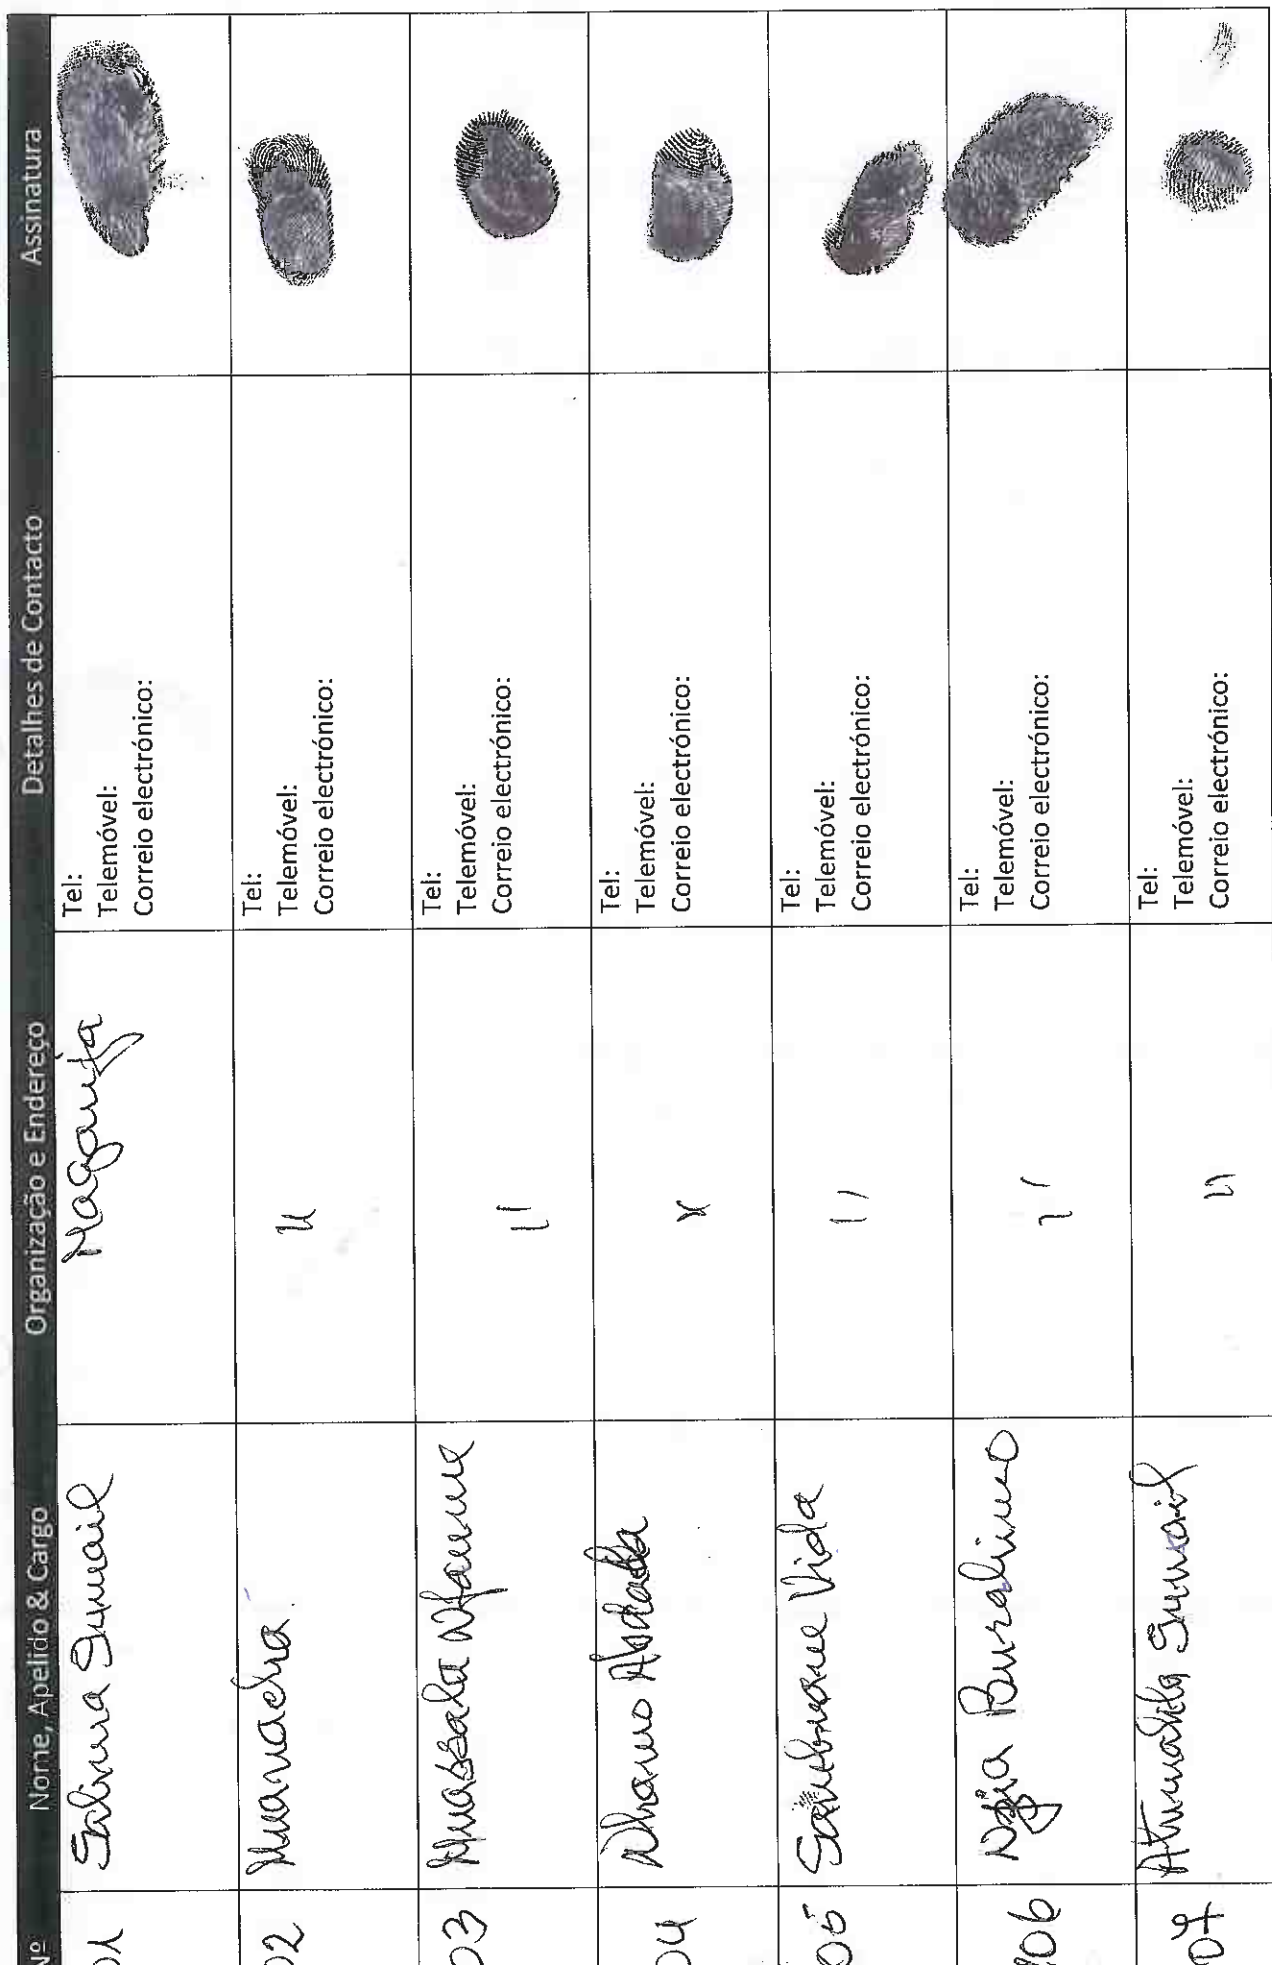 Nº Nome, Apelido & Cargo Organização e Endereço Detalhes de Contacto Assinatura
01 Salima Sumail Maganja Tel:
Telemóvel:
Correio electrónico:
02 Muanacha. 11 Tel:
Telemóvel:
Correio electrónico:
03 Muassala 11 Tel:
Telemóvel:
Correio electrónico:
04 Abdala 11 Tel:
Telemóvel:
Correio electrónico:
05 Vida 11 Tel:
Telemóvel:
Correio electrónico:
06 11 Tel:
Telemóvel:
Correio electrónico:
07 Sumail 11 Tel:
Telemóvel:
Correio electrónico: